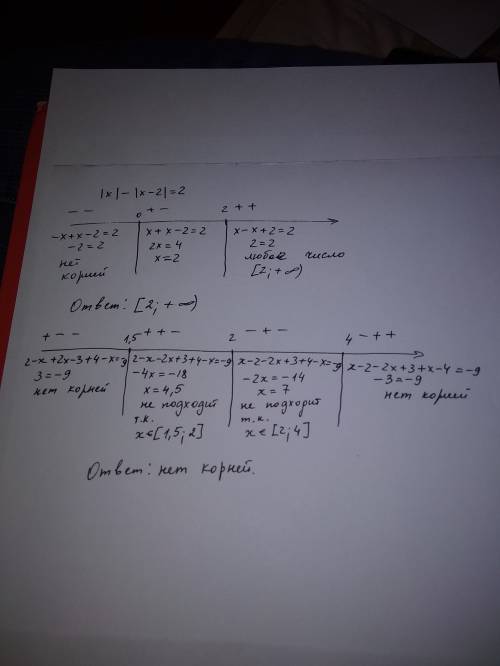 |x|-|x-2|=2
- - 0 + - 2 + +
-x+x-2=2 x+x-2=2 x-x+2=2
-2=2 2x=4 2=2
нет x=2 любое число
корней [2;+∞)
Ответ: [2;+∞)
+ - - 1,5 + + - 2 - + - 4 - + +
2-x+2x-3+4-x=-9 2-x-2x+3+4-x=-9 x-2-2x+3+4-x=-9 x-2-2x+3+x-4=-9
3=-9 -4x=-18 -2x=-14 -3=-9
нет корней x=4,5 x=7 нет корней
не подходит не подходит
т.к. т.к.
x∈[1,5;2] x∈[2;4]
Ответ: нет корней.